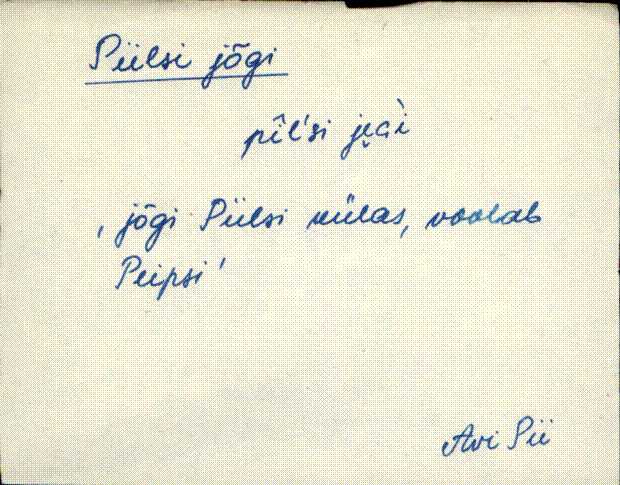 Piilsi jõgi
pîl'si je̮Gì
, jõgi Piilsi külas, voolab
Peipsi'
Avi Pii